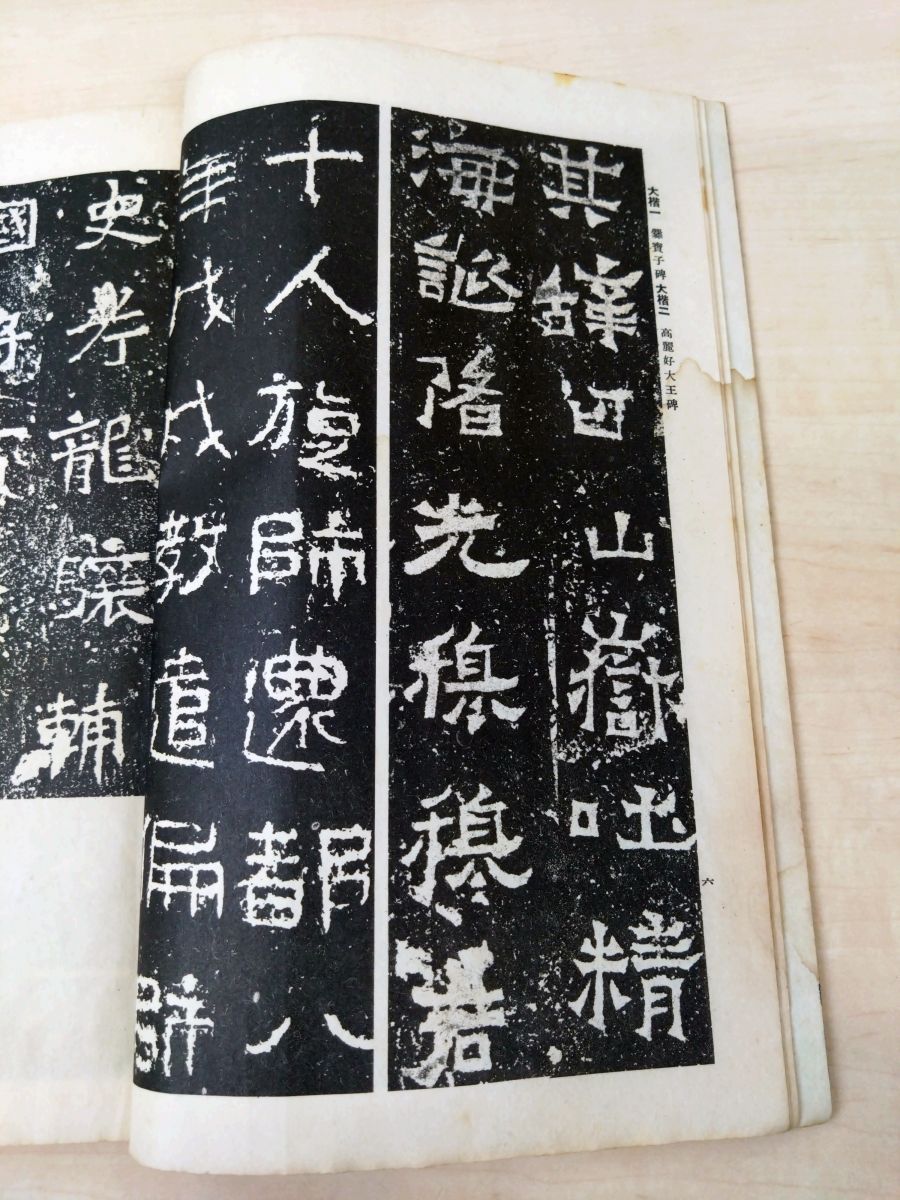 大楷一 爨寶子碑 大楷二 高麗好大王碑
六
其辭曰山嶽吐精
海誕陼光穆穆君
十人旋師還都八
年戊戌教遣偏師
史考龍驤輔
國將軍